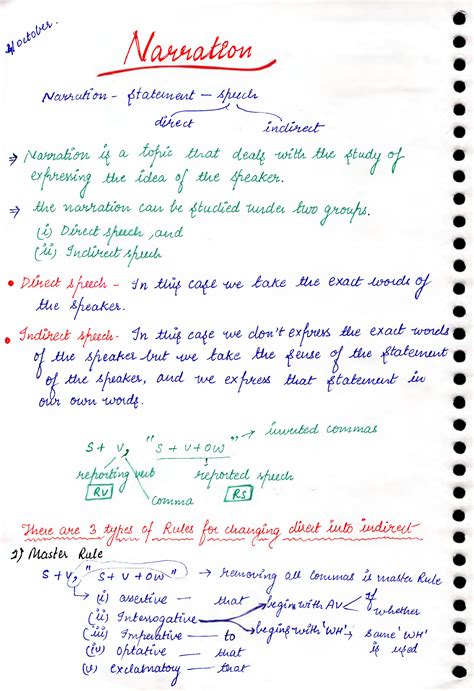 4 October.
Narration
Narration - statement - speech
direct indirect
⇒ Narration is a topic that deals with the study of
expressing the idea of the speaker.
⇒ the narration can be studied under two groups.
(i) Direct speech, and
(ii) Indirect speech
• Direct speech - In this case we take the exact words of
the speaker.
• Indirect speech - In this case we don't express the exact words
of the speaker but we take the sense of the statement
of the speaker, and we express that statement in
our own words.
S + V, "S + V + OW" → inverted commas
reporting verb reported speech
RV comma RS
There are 3 types of Rules for changing direct into indirect
1) Master Rule
S + V, "S + V + OW" → removing all commas is master Rule
(i) assertive — that begins with AV if
(ii) Interrogative whether
(iii) Imperative — to begins with 'WH' → same 'WH'
(iv) optative — that is used
(v) Exclamatory — that